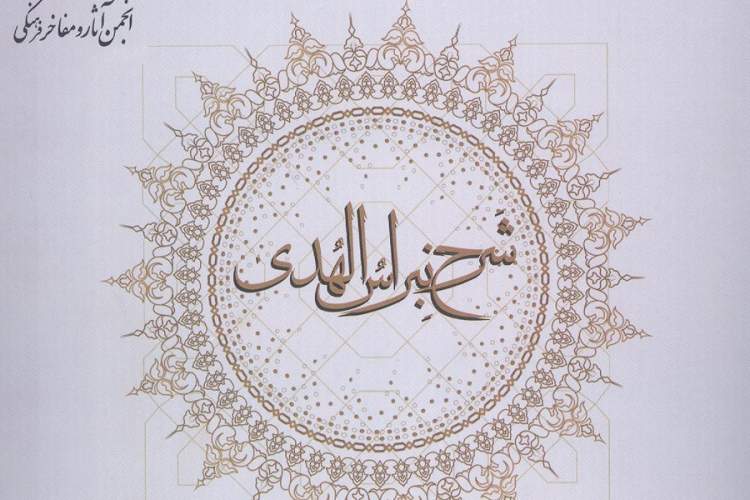 انجمن آثار و مفاخر فرهنگی
شَرح نِبراسُ الهُدی